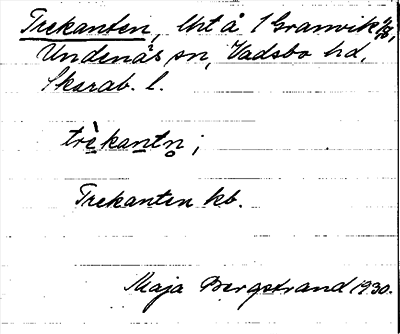 Trekanten, lht å 1 Granvik 1/8,
Undenäs sn, Vadsbo hd,
Skarab. l.
trèkantn̥;
Trekanten kb.
Maja Bergstrand 1930.